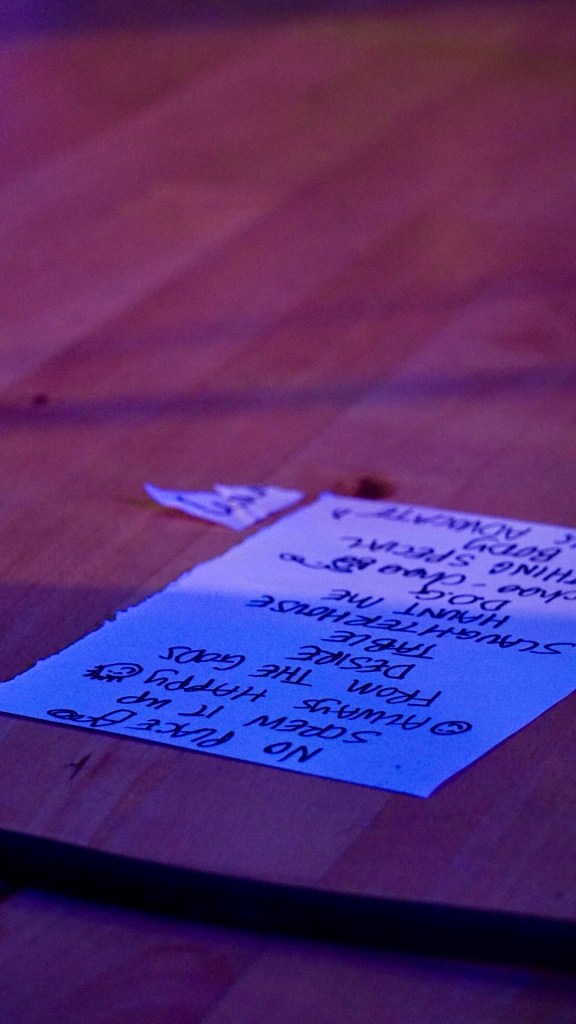 ADVOCATE
BODY
THING SPECIAL
choo-choo
D.O.G
HAUNT ME
SLAUGHTERHOUSE
TABLE
DESIRE
FROM THE GODS
ALWAYS HAPPY
SCREW IT UP
NO PLACE